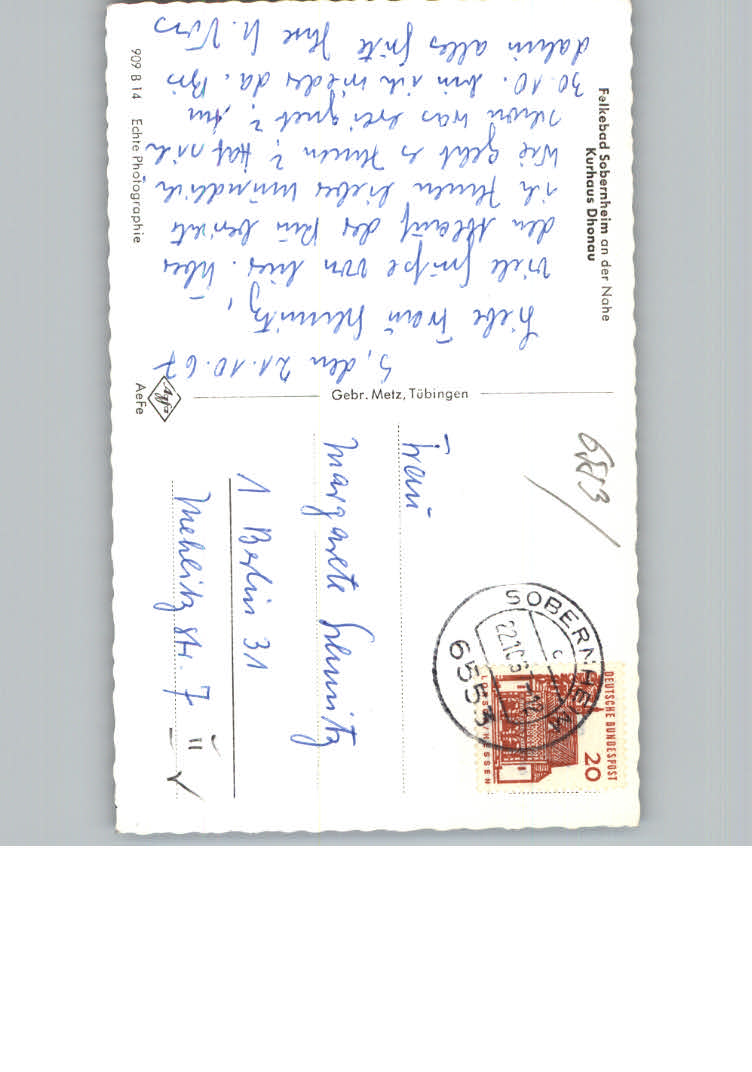 Felkebad Sobernheim an der Nahe
Kurhaus Dhonau
S, den 21.10.67
Liebe Frau
Viele Grüße von hier. Über
den Ablauf der Kur berichte
ich Ihnen lieber mündlich
Wie geht es Ihnen? Hat sich
schon was ereignet? Am
30.10. bin ich wieder da. Bis
dahin alles Gute Ihre
909 B 14 Echte Photographie
Gebr. Metz, Tübingen
Agfa
AeFe
6553
Frau
Margarete
1 Berlin 31
Mehlitz str. 7 II
SOBERNHEIM
22.10.67
6553
DEUTSCHE BUNDESPOST
20
LORSCH/HESSEN